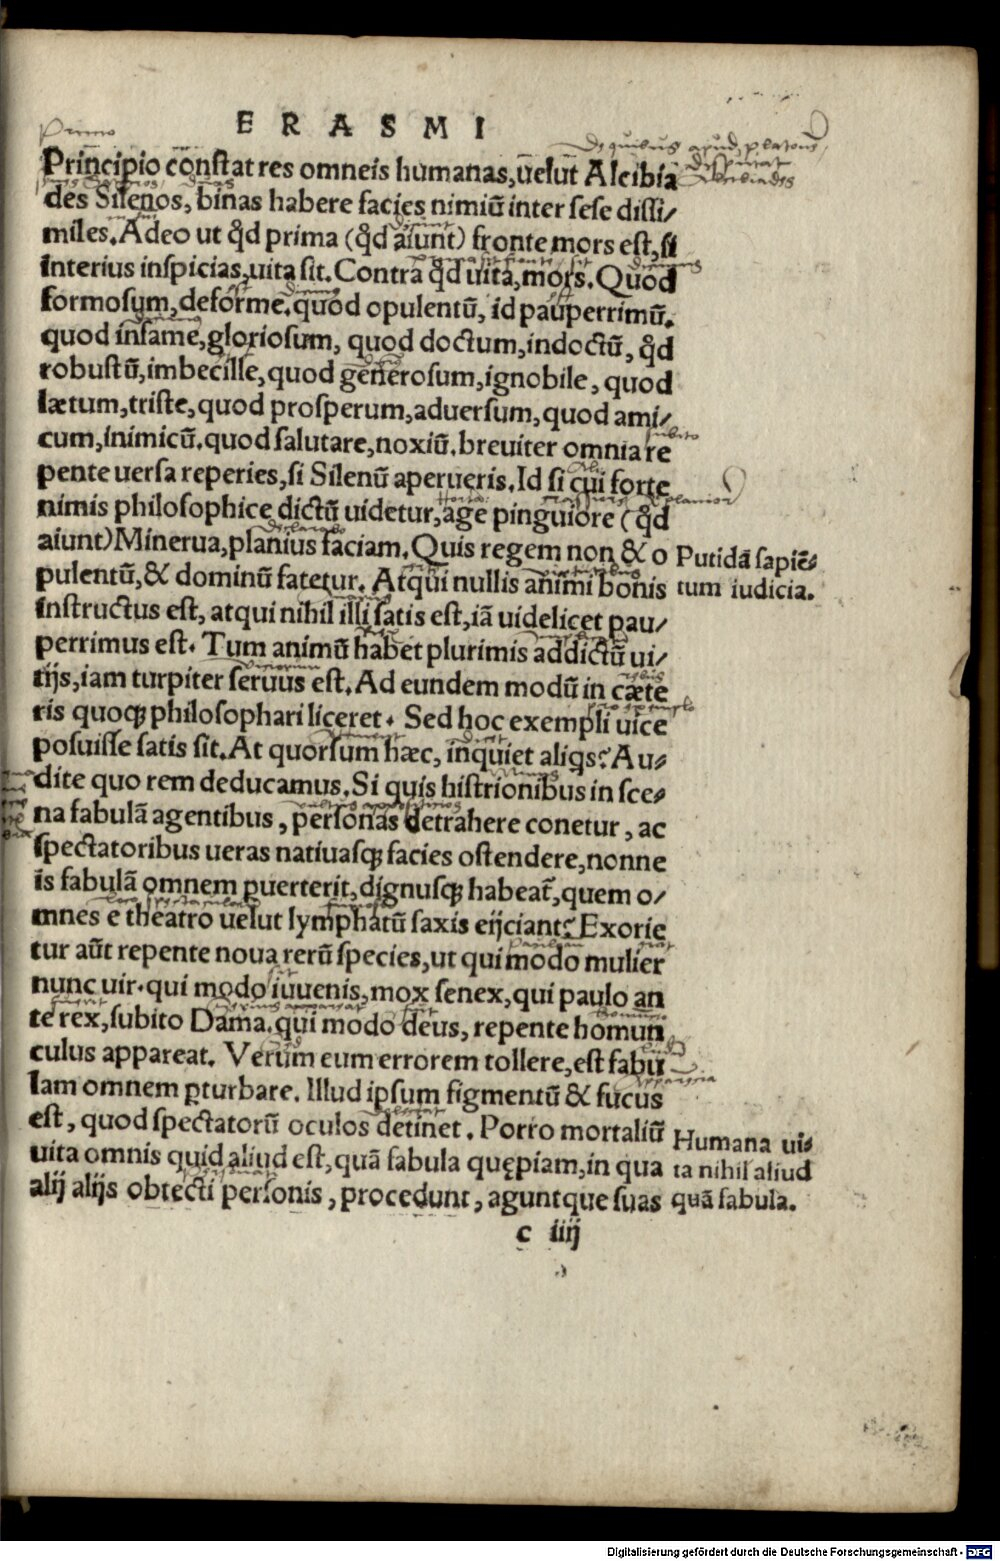 ERASMI
Principio constat res omneis humanas, uelut Alcibia
des Silenos, binas habere facies nimiũ inter sese dissi/
miles. Adeo ut qd̃ prima (qd̃ aiunt) fronte mors est, si
interius inspicias, uita sit. Contra qd̃ uita, mors. Quod
formosum, deforme. quod opulentũ, id pauperrimũ.
quod infame, gloriosum, quod doctum, indoctũ, qd̃
robustũ, imbecille, quod generosum, ignobile, quod
lætum, triste, quod prosperum, aduersum, quod ami/
cum, inimicũ. quod salutare, noxiũ. breuiter omnia re
pente uersa reperies, si Silenũ aperueris. Id si cui forte
nimis philosophice dictũ uidetur, age pinguiore (qd̃
aiunt) Minerua, planius faciam. Quis regem non & o
Putidã sapiẽ-
pulentũ, & dominũ fatetur. Atqui nullis animi bonis
tum iudicia.
instructus est, atqui nihil illi satis est, iã uidelicet pau/
perrimus est. Tum animũ habet plurimis addictũ ui/
tijs, iam turpiter seruus est. Ad eundem modũ in cæte
ris quoqꝫ philosophari liceret. Sed hoc exempli uice
posuisse satis sit. At quorsum hæc, inquiet aliqs? Au-
dite quo rem deducamus. Si quis histrionibus in sce-
na fabulã agentibus, personas detrahere conetur, ac
spectatoribus ueras natiuasqꝫ facies ostendere, nonne
is fabulã omnem ꝑuerterit, dignusqꝫ habeat̃, quem o/
mnes e theatro uelut lymphatũ saxis eijciant? Exorie
tur aũt repente noua rerũ species, ut qui modo mulier
nunc uir. qui modo iuuenis, mox senex, qui paulo an
te rex, subito Dama. qui modo deus, repente homun
culus appareat. Verum eum errorem tollere, est fabu
lam omnem ꝑturbare. Illud ipsum figmentũ & fucus
est, quod spectatorũ oculos detinet. Porro mortaliũ
Humana ui-
uita omnis quid aliud est, quã fabula quępiam, in qua
ta nihil aliud
alij alijs obtecti personis, procedunt, aguntque suas
quã fabula.
c iiij
Digitalisierung gefördert durch die Deutsche Forschungsgemeinschaft - DFG